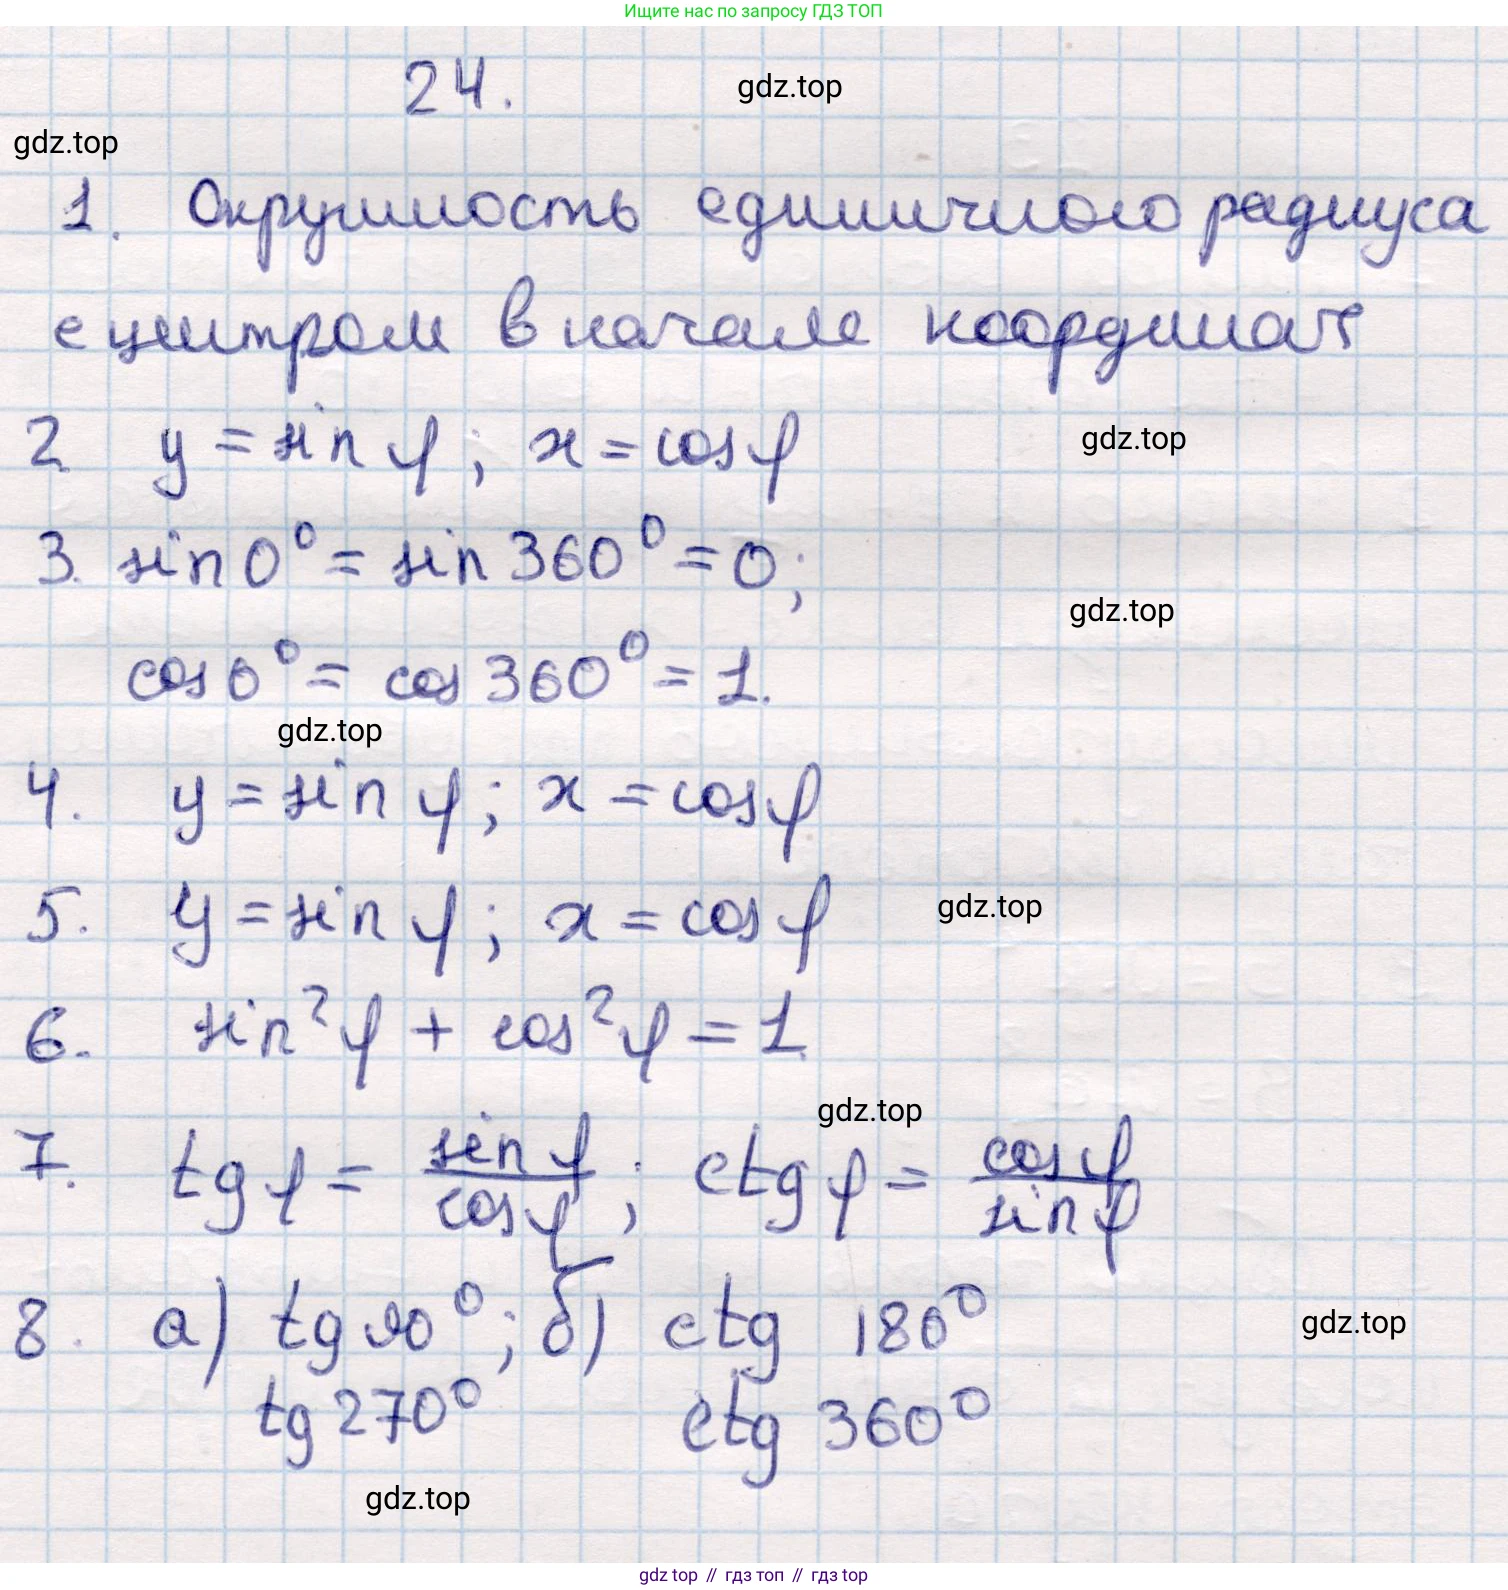 Ищите нас по запросу ГДЗ ТОП
24.
gdz.top
gdz.top
1. Окружность единичного радиуса
с центром в начале координат
2 y = sin φ; x = cos φ
gdz.top
3. sin 0° = sin 360° = 0;
gdz.top
cos 0° = cos 360° = 1.
gdz.top
4. y = sin φ; x = cos φ
5. y = sin φ; x = cos φ
gdz.top
6. sin² φ + cos² φ = 1
gdz.top
7. tg φ = sin φ / cos φ ; ctg φ = cos φ / sin φ
8. а) tg 90°; б) ctg 180°
gdz.top
tg 270° ctg 360°
gdz.top
gdz top // гдз топ // гдз top